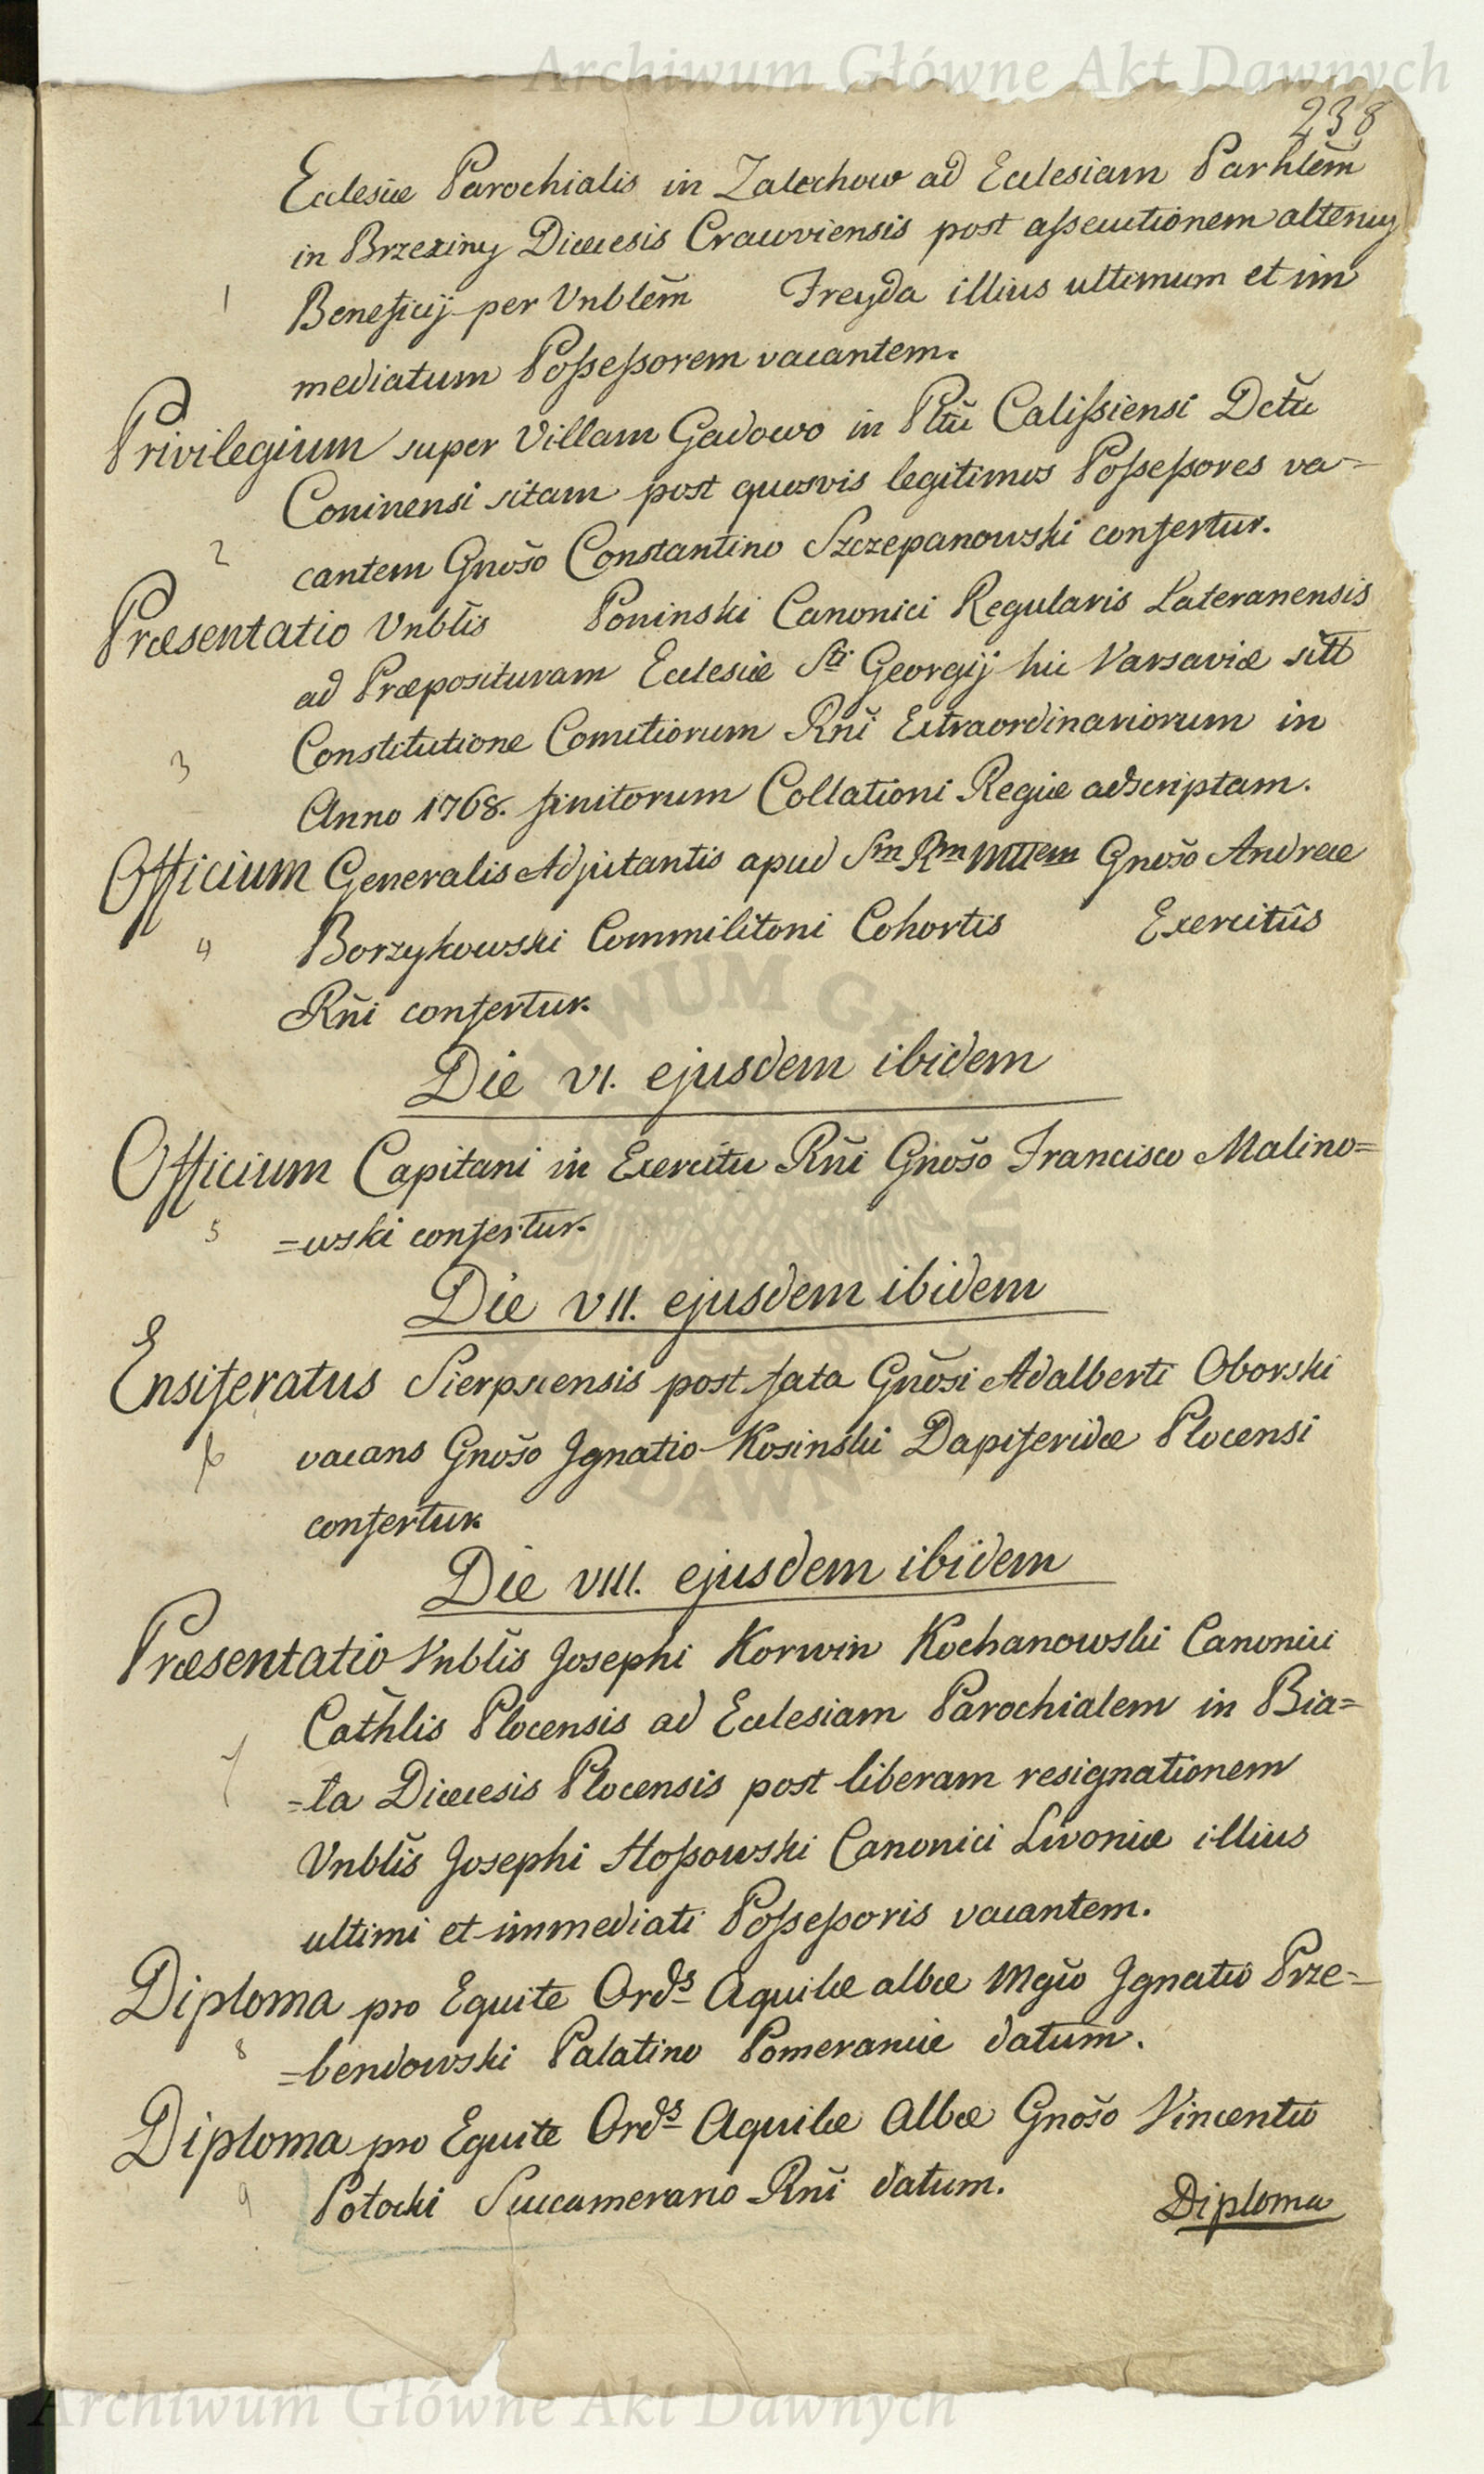 Archiwum Główne Akt Dawnych
238
Ecclesiæ Parochialis in Zalechow ad Ecclesiam Parhlem̃
in Brzeziny Diæcesis Cracoviensis post aſsecutionem alterius
1 Beneficij per Vnblem̃ Freyda illius ultimum et im
mediatum Poſseſsorem vacantem.
Privilegium super Villam Gadowo in Pttũ Caliſsiensi Dctũ
Coninensi sitam post quosvis legitimos Poſseſsores va=
2 cantem Gnoso Constantino Szczepanowski confertur.
Præsentatio Vnblis Poninski Canonici Regularis Lateranensis
ad Præposituram Ecclesiæ Sti Georgij hic Varsaviæ sitt
Constitutione Comitiorum Rñi Extraordinariorum in
3 Anno 1768. finitorum Collationi Regiæ adscriptam.
Officium Generalis Adjutantis apud Sm Rm Mttem Gnoso Andreæ
4 Borzykowski Commilitoni Cohortis Exercitûs
Rñi confertur.
Die VI. ejusdem ibidem
Officium Capitani in Exercitu Rñi Gnoso Francisco Malino=
5 =wski confertur.
Die VII. ejusdem ibidem
Ensiferatus Sierpscensis post fata Gnosi Adalberti Oborski
6 vacans Gnoso Ignatio Kosinski Dapiferidæ Plocensi
confertur.
Die VIII. ejusdem ibidem
Præsentatio Vnblis Josephi Korwin Kochanowski Canonici
Cathlis Plocensis ad Ecclesiam Parochialem in Bia=
7 =ła Diæcesis Plocensis post liberam resignationem
Vnblis Josephi Hoſsowski Canonici Livoniæ illius
ultimi et immediati Poſseſsoris vacantem.
Diploma pro Equite Ords Aquilæ albæ Mgco Ignatio Prze=
8 =bendowski Palatino Pomeraniæ datum.
Diploma pro Equite Ords Aquilæ Albæ Gnoso Vincentio
9 Potocki Succamerario Rñi datum.
Diploma
Archiwum Główne Akt Dawnych